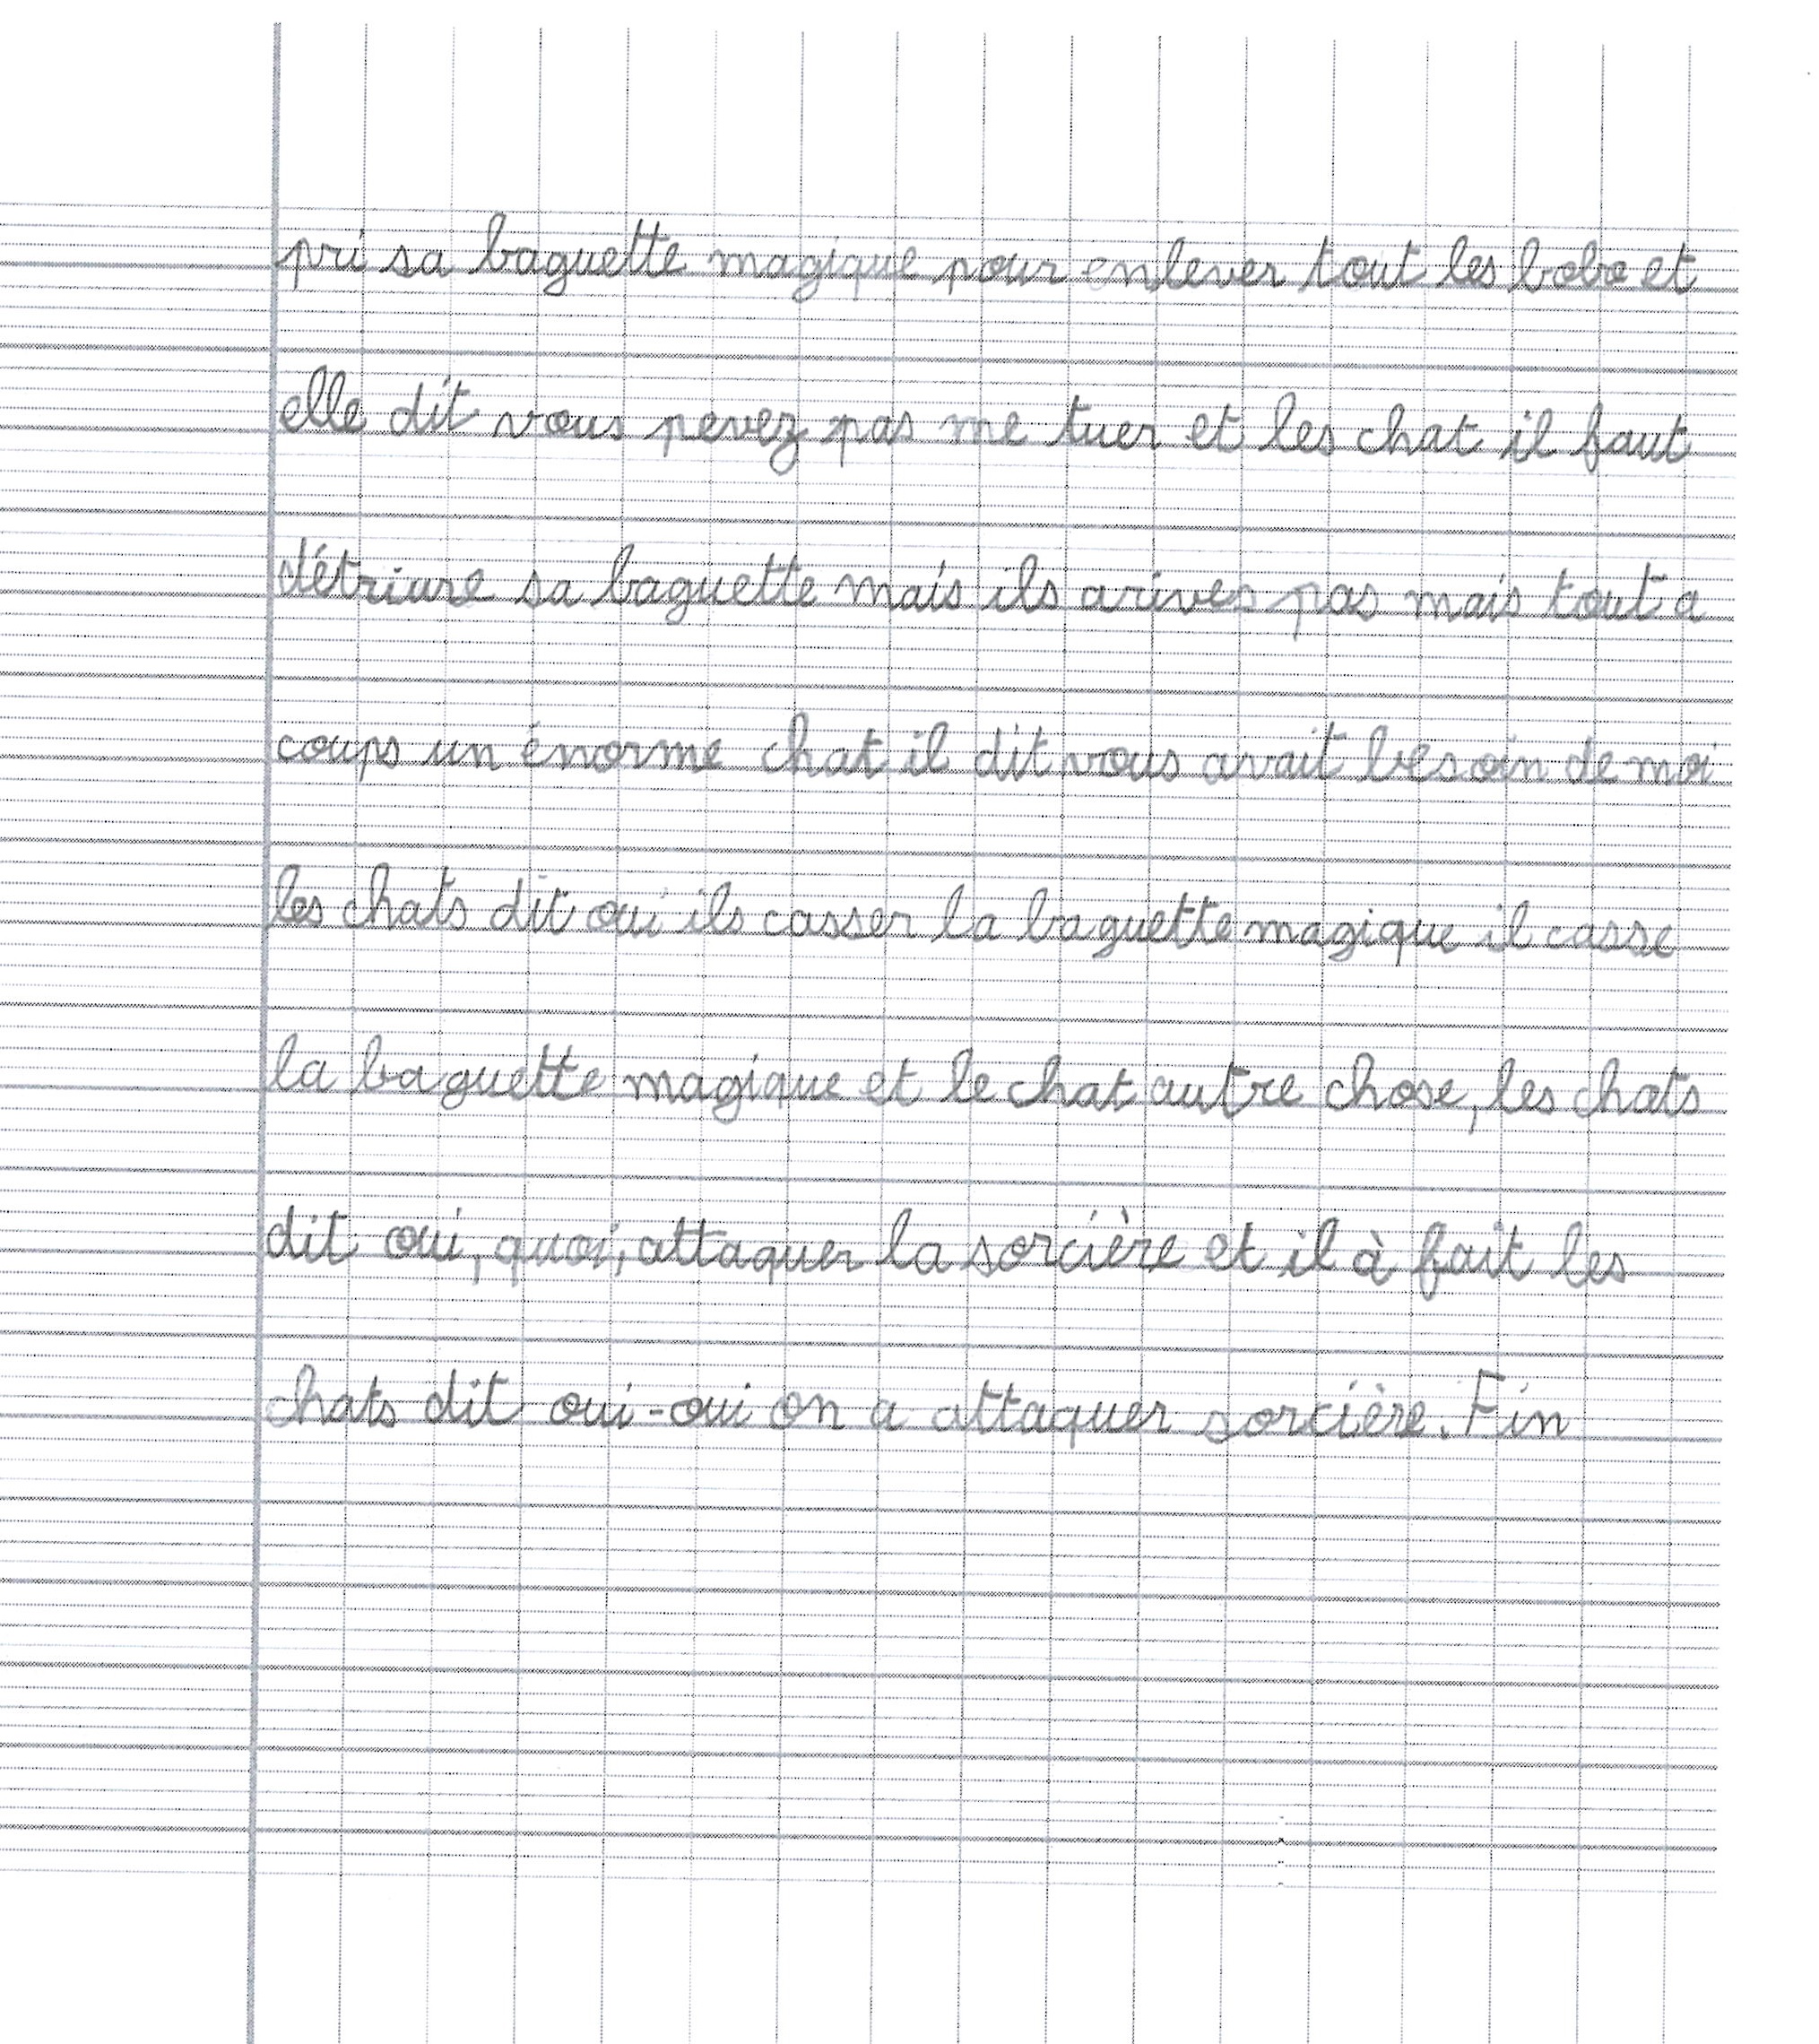 pri sa baguette magique pour enlever tout les bobo et
elle dit vous pevez pas me tuer et les chat il faut
détriure sa baguette mais ils arives pas mais tout a
coups un énorme chat il dit vous avait besoin de moi
les chats dit oui ils casser la baguette magique il casse
la baguette magique et le chat autre chose, les chats
dit oui, quoi, attaquer la sorcière et il à fait les
chats dit oui-oui on a attaquer sorcière. Fin